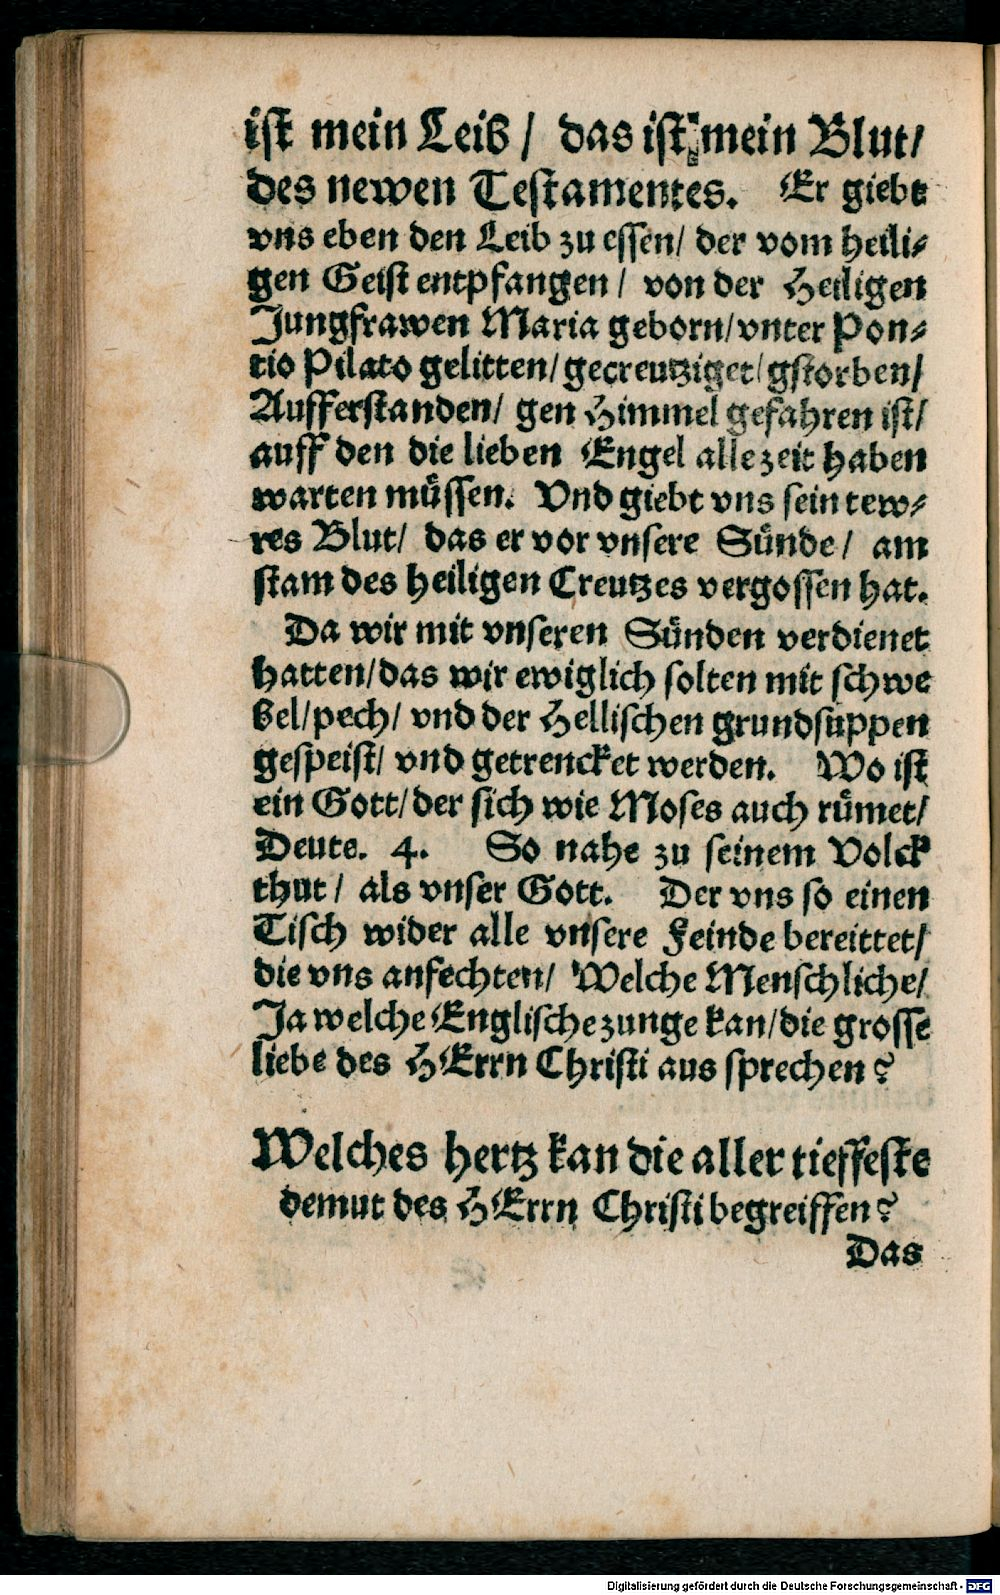 ist mein Leib / das ist mein Blut/
des newen Testamentes. Er giebt
vns eben den Leib zu essen/ der vom heili⸗
gen Geist entpfangen / von der Heiligen
Jungfrawen Maria geborn/vnter Pon⸗
tio Pilato gelitten/gecreutziget/gstorben/
Aufferstanden/ gen Himmel gefahren ist/
auff den die lieben Engel alle zeit haben
warten müssen. Vnd giebt vns sein tew⸗
res Blut/ das er vor vnsere Sünde / am
stam des heiligen Creutzes vergossen hat.
Da wir mit vnseren Sünden verdienet
hatten/das wir ewiglich solten mit schwe
bel/pech/ vnd der Hellischen grundsuppen
gespeist/ vnd getrencket werden. Wo ist
ein Gott/der sich wie Moses auch rümet/
Deute. 4. So nahe zu seinem Volck
thut / als vnser Gott. Der vns so einen
Tisch wider alle vnsere Feinde bereittet/
die vns anfechten/ Welche Menschliche/
Ja welche Englische zunge kan/die grosse
liebe des HErrn Christi aus sprechen?
Welches hertz kan die aller tieffeste
demut des HErrn Christi begreiffen?
Das
Digitalisierung gefördert durch die Deutsche Forschungsgemeinschaft - DFG